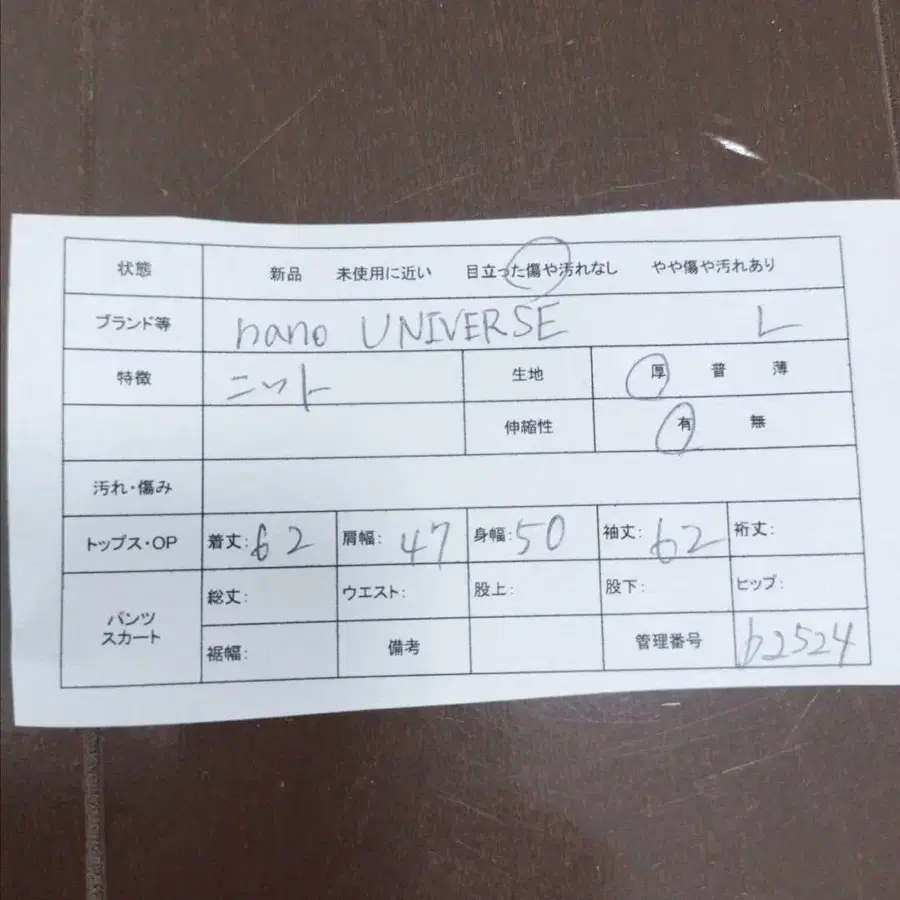 状態 新品 未使用に近い 目立った傷や汚れなし やや傷や汚れあり
ブランド等 nano UNIVERSE L
特徴 ニット 生地 厚 普 薄
伸縮性 有 無
汚れ・傷み
トップス・OP 着丈: 62 肩幅: 47 身幅: 50 袖丈: 62 裄丈:
パンツ スカート 総丈: ウエスト: 股上: 股下: ヒップ:
裾幅: 備考 管理番号 b2524